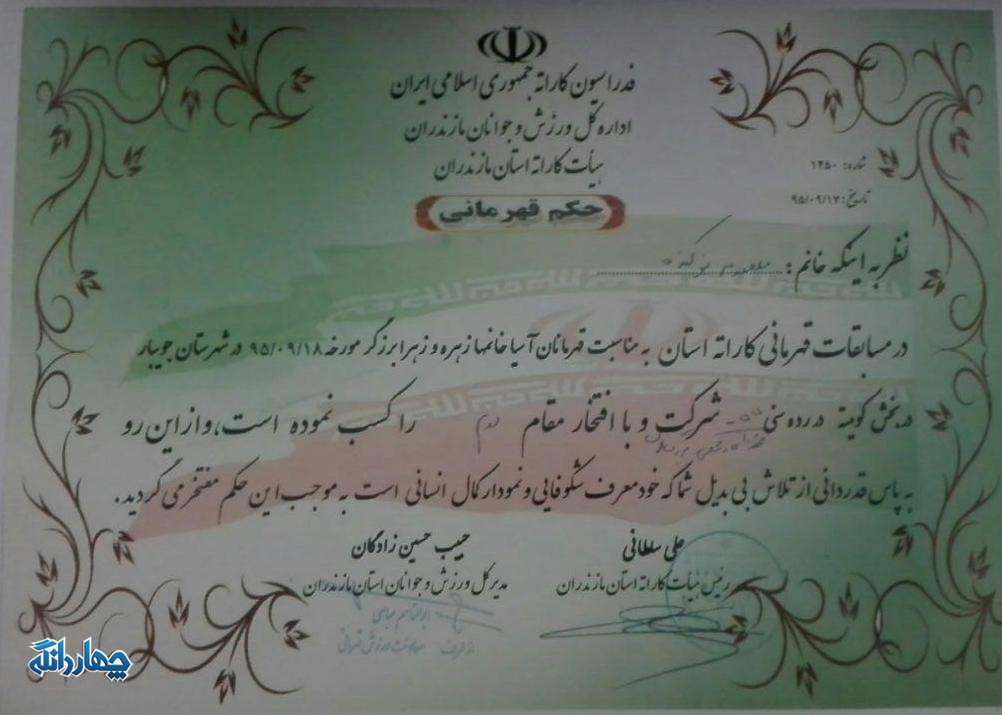 فدراسیون کاراته جمهوری اسلامی ایران
اداره کل ورزش و جوانان مازندران
هیأت کاراته استان مازندران
شماره: ۱۲۵۰
تاریخ: ۹۵/۰۹/۱۷
حکم قهرمانی
نظر به اینکه خانم :
در مسابقات قهرمانی کاراته استان به مناسبت قهرمانان آسیا خانمها زهره و زهرا برزگر مورخه ۹۵/۰۹/۱۸ در شهرستان جویبار
در بخش کومیته در رده سنی شرکت و با افتخار مقام دوم را کسب نموده است، و از این رو
به پاس قدردانی از تلاش بی بدیل شما که خود معرف شکوفایی و نمودار کمال انسانی است به موجب این حکم مفتخر می گردید.
علی سلطانی
رئیس هیأت کاراته استان مازندران
حبیب حسین زادگان
مدیر کل ورزش و جوانان استان مازندران
از طرف
چهاردانگه